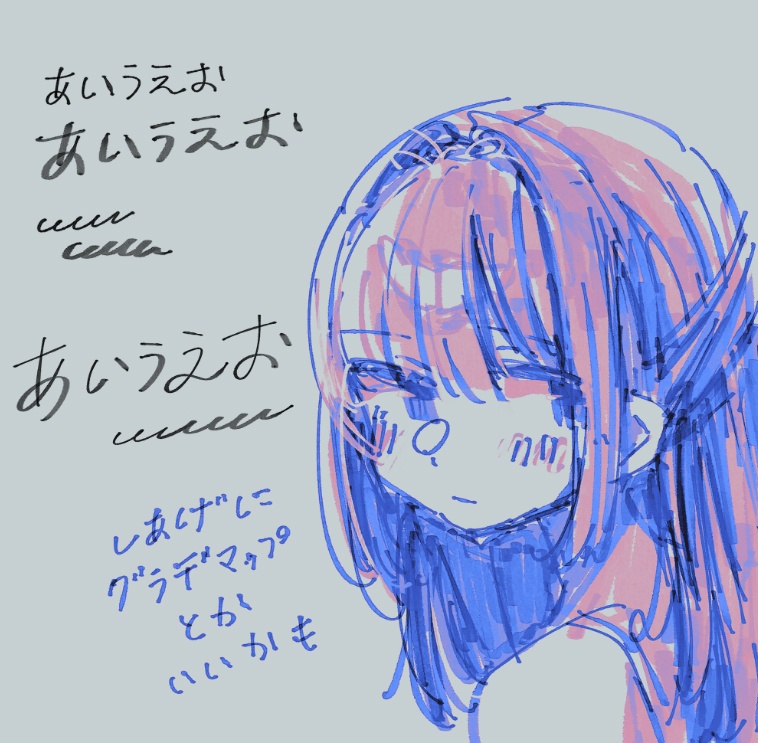 あいうえお
あいうえお
あいうえお
しあげに
グラデマップ
とか
いいかも